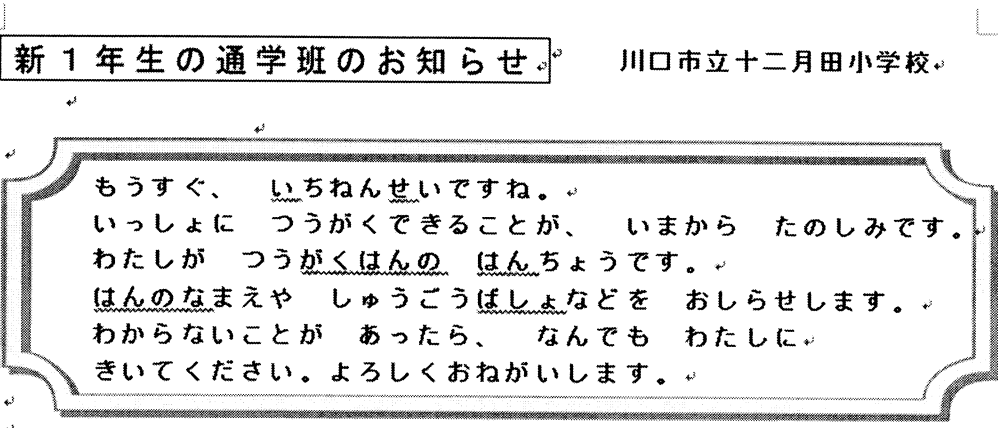 新１年生の通学班のお知らせ　川口市立十二月田小学校
もうすぐ、　いちねんせいですね。
いっしょに　つうがくできることが、　いまから　たのしみです。
わたしが　つうがくはんの　はんちょうです。
はんのなまえや　しゅうごうばしょなどを　おしらせします。
わからないことが　あったら、　なんでも　わたしに
きいてください。よろしくおねがいします。